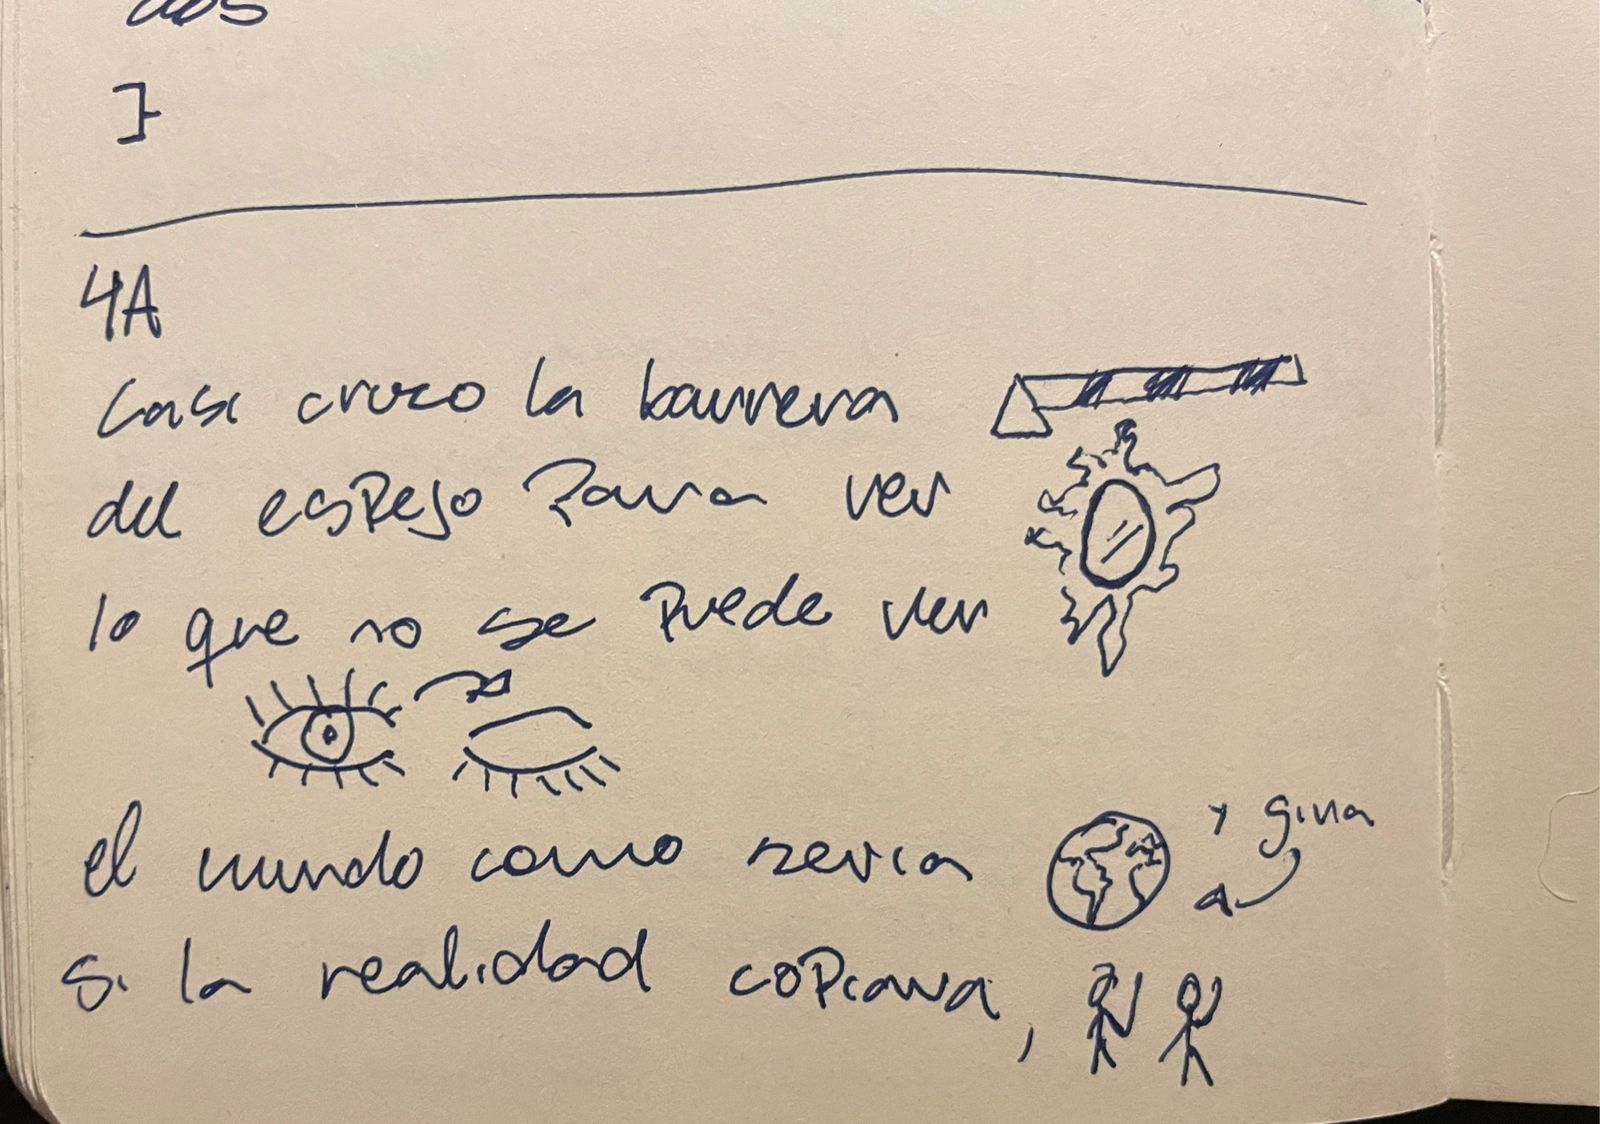 dos
}
4A
casi cruzo la barrera
del espejo para ver
lo que no se puede ver
el mundo como seria
y gira
si la realidad copiara,